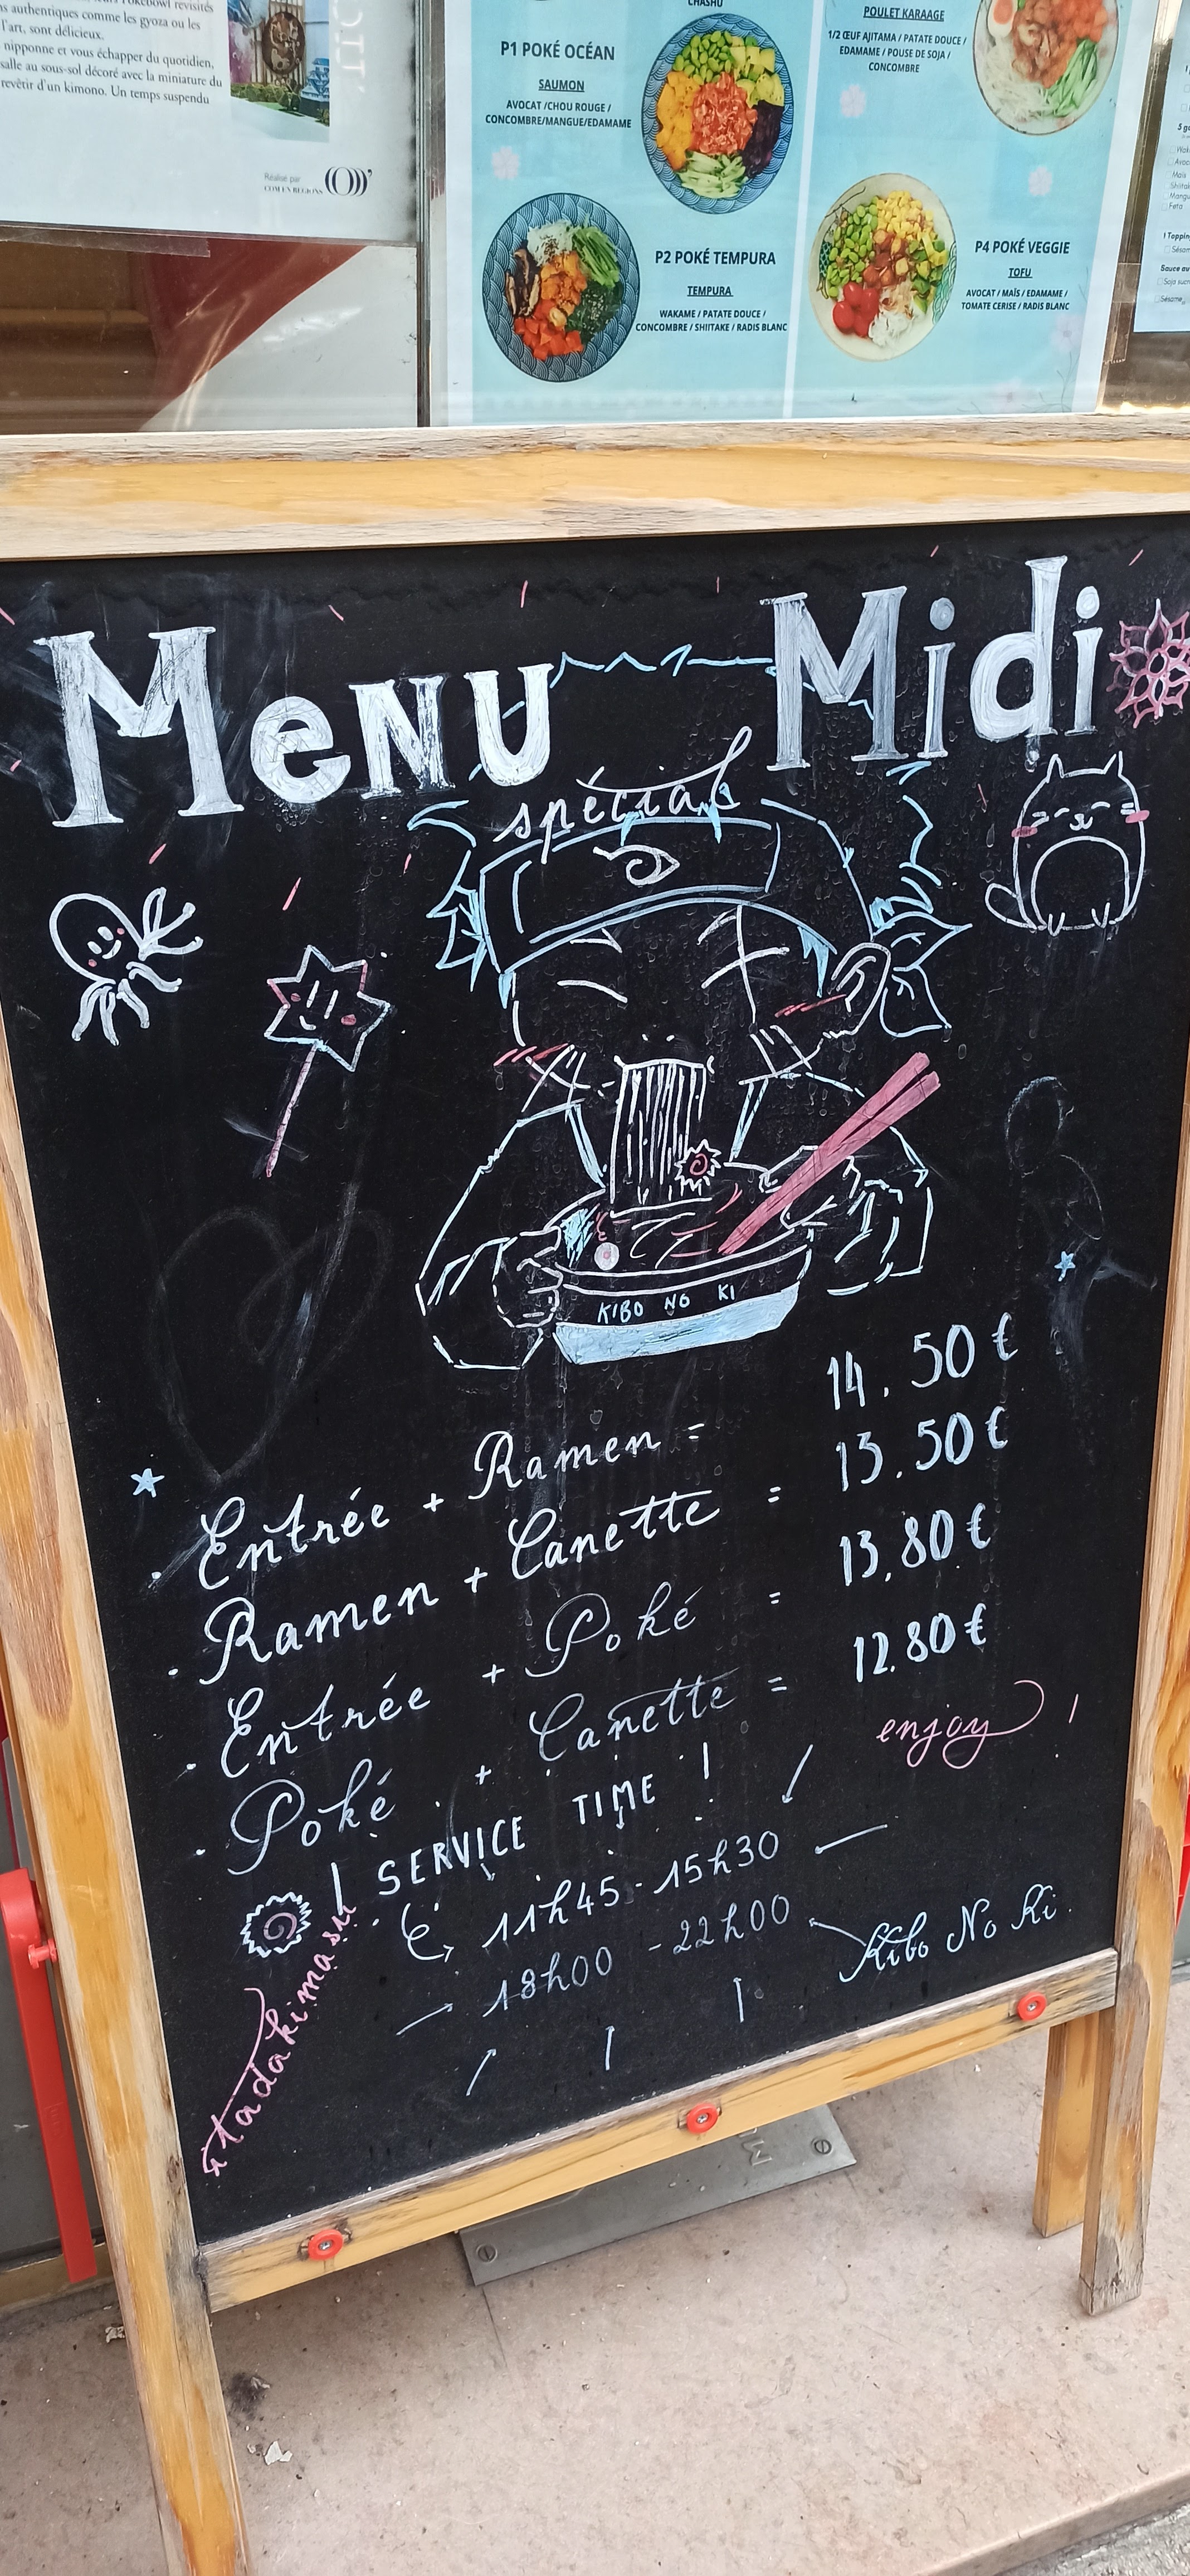 revisités
authentiques comme les gyoza ou les
l'art, sont délicieux.
nipponne et vous échapper du quotidien,
salle au sous-sol décoré avec la miniature du
revêtir d'un kimono. Un temps suspendu
Réalisé par
COM EN REGIONS
CHASHU
P1 POKÉ OCÉAN
SAUMON
AVOCAT /CHOU ROUGE /
CONCOMBRE/MANGUE/EDAMAME
POULET KARAAGE
1/2 ŒUF AJITAMA / PATATE DOUCE /
EDAMAME / POUSE DE SOJA /
CONCOMBRE
P2 POKÉ TEMPURA
TEMPURA
WAKAME / PATATE DOUCE /
CONCOMBRE / SHIITAKE / RADIS BLANC
P4 POKÉ VEGGIE
TOFU
AVOCAT / MAÏS / EDAMAME /
TOMATE CERISE / RADIS BLANC
Maïs
Feta
Menu Midi
spécial
KIBO NO KI
Entrée + Ramen = 14.50 €
Ramen + Canette = 13.50 €
Entrée + Poké = 13.80 €
Poké + Canette = 12.80 €
enjoy !
! SERVICE TIME !
11h45 - 15h30
18h00 - 22h00
Kibo No Ki.
itadakimasu